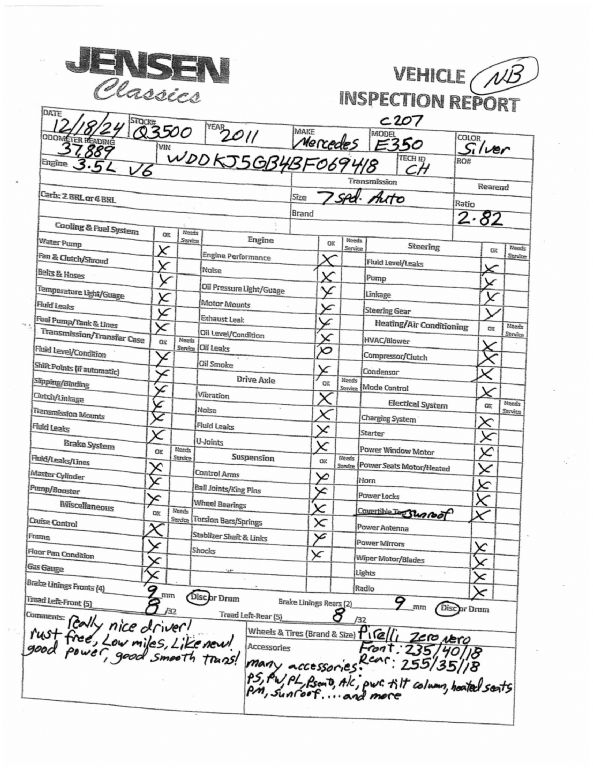 JENSEN
Classics
VEHICLE NB
INSPECTION REPORT
C207
DATE 12/18/24 STOCK# Q3500 YEAR 2011 MAKE Mercedes MODEL E350 COLOR Silver
ODOMETER READING 37,889 VIN WDDKJ5GB4BF069418 TECH ID CH RO#
Engine 3.5L V6 Transmission Rearend
Carb: 2 BRL or 4 BRL Size 7 spd. Auto Ratio 2.82
Brand
Cooling & Fuel System OK Needs Service Engine OK Needs Service Steering OK Needs Service
Water Pump X Engine Performance X Fluid Level/Leaks X
Fan & Clutch/Shroud X Noise X Pump X
Belts & Hoses X Oil Pressure Light/Guage X Linkage X
Temperature Light/Guage X Motor Mounts X Steering Gear X
Fluid Leaks X Exhaust Leak X Heating/Air Conditioning OK Needs Service
Fuel Pump/Tank & Lines X Oil Level/Condition X HVAC/Blower X
Transmission/Transfer Case OK Needs Service Oil Leaks Compressor/Clutch X
Fluid Level/Condition X Oil Smoke X Condensor X
Shift Points (if automatic) X Drive Axle OK Needs Service Mode Control X
Slipping/Binding X Vibration X Electical System OK Needs Service
Clutch/Linkage X Noise X Charging System X
Transmission Mounts X Fluid Leaks X Starter X
Fluid Leaks X U-Joints X Power Window Motor X
Brake System OK Needs Service Suspension OK Needs Service Power Seats Motor/Heated X
Fluid/Leaks/Lines X Control Arms X Horn X
Master Cylinder X Ball Joints/King Pins X Power Locks X
Pump/Booster X Wheel Bearings X Covertible Top sunroof X
Miscellaneous OK Needs Service Torsion Bars/Springs X Power Antenna
Cruise Control X Stabilizer Shaft & Links X Power Mirrors X
Frame X Shocks X Wiper Motor/Blades X
Floor Pan Condition X Lights X
Gas Gauge X Radio X
Brake Linings Fronts (4) 9 mm Disc or Drum Brake Linings Rears (2) 9 mm Disc or Drum
Tread Left-Front (5) 8 /32 Tread Left-Rear (5) 8 /32
Comments: really nice driver!
rust free, Low miles, Like new!
good power, good smooth trans!
Wheels & Tires (Brand & Size) Pirelli Zero Nero
Front: 235/40/18
Rear: 255/35/18
Accessories
many accessories.
PS, PW, PL, Pseats, A/c, pwr tilt column, heated seats
PM, sunroof....and more